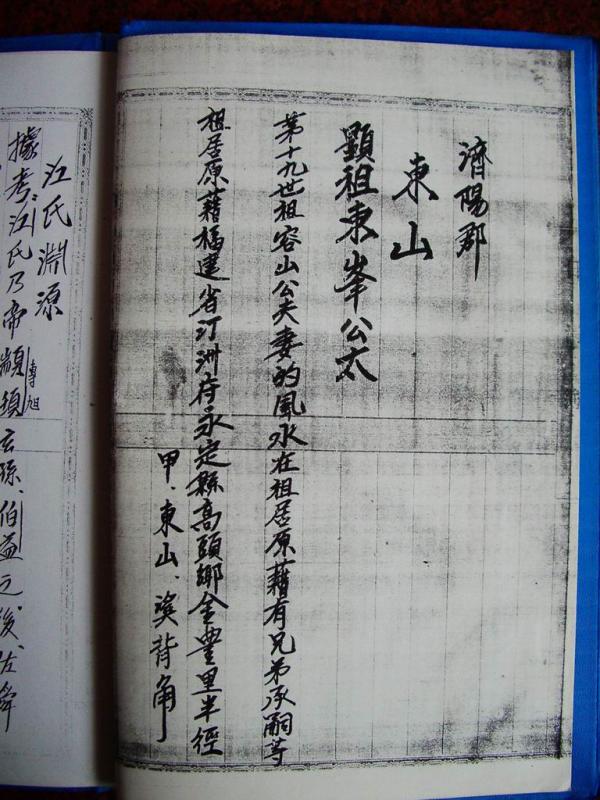 濟陽郡
東山
顯祖東峯公太
第十九世祖容山公夫妻的風水在祖居原藉有兄弟承嗣等
祖居原藉福建省汀洲府永定縣高頭鄉金豐里半徑
甲、東山、溪背角
江氏淵源
據考:江氏乃帝顓頊專旭玄孫、伯益之後、佐舜